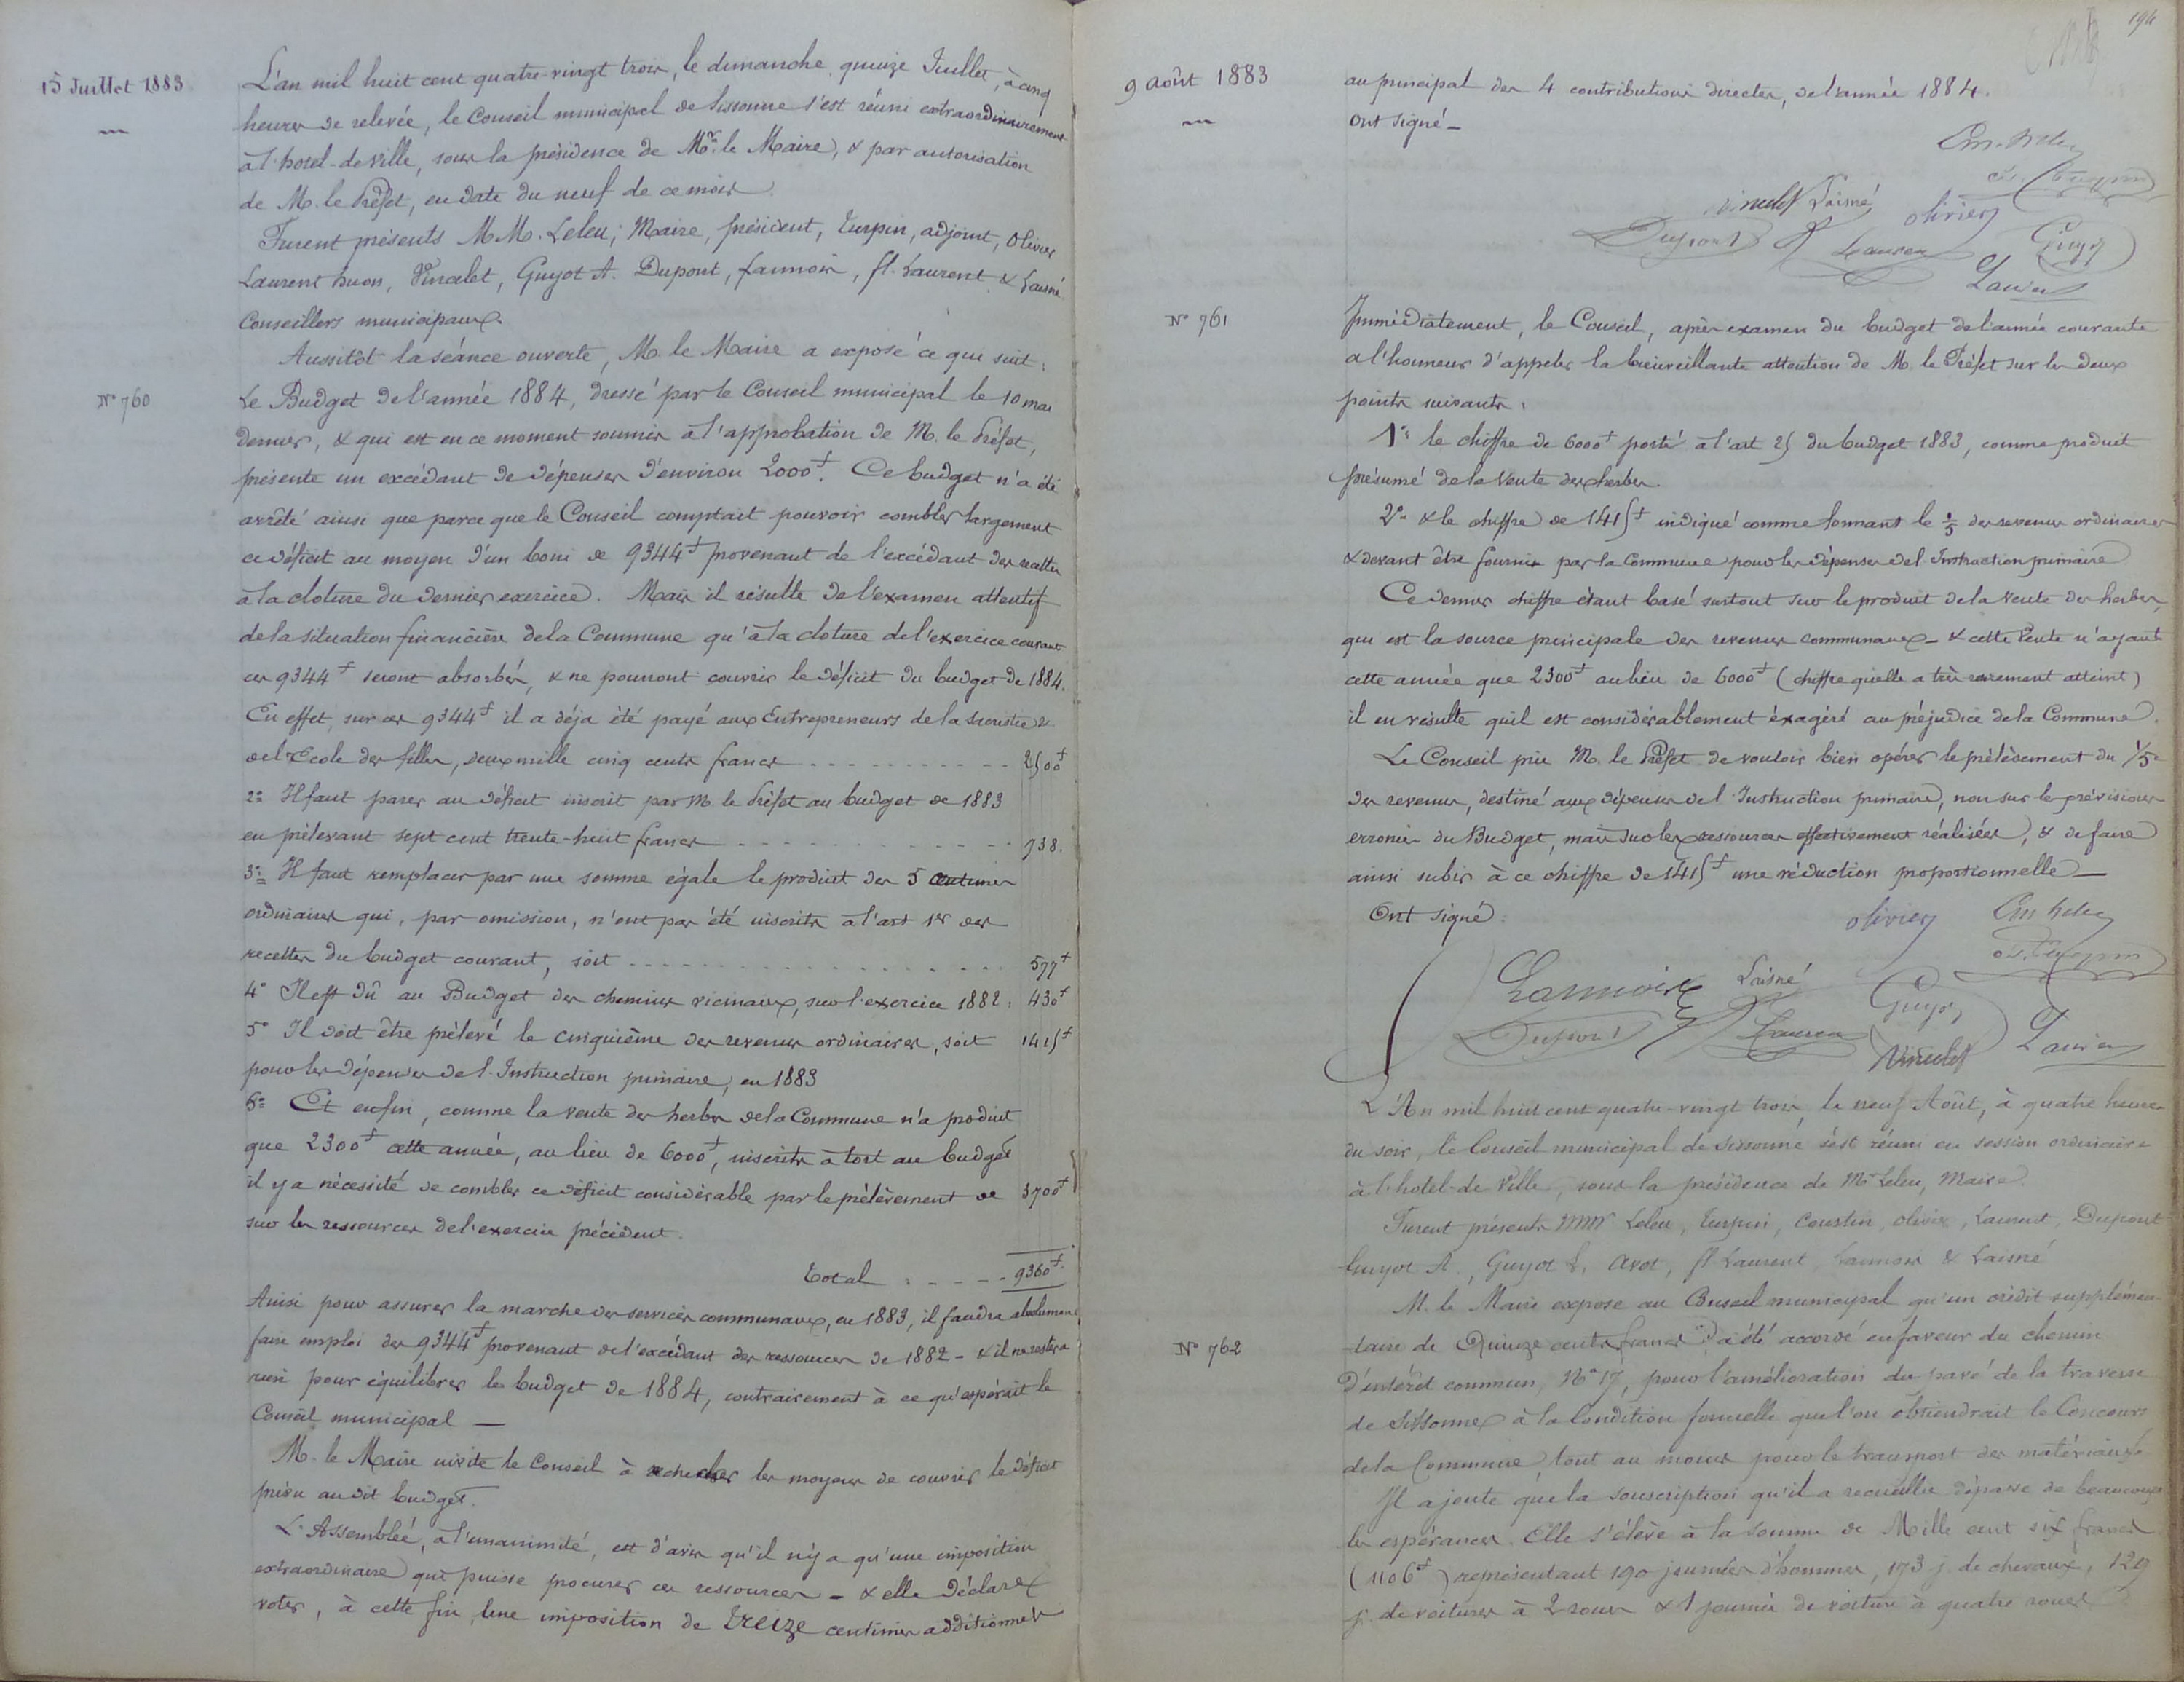 15 Juillet 1883
L'an mil huit cent quatre-vingt trois, le dimanche quinze Juillet, à cinq
heures de relevée, le Conseil municipal de Sissonne s'est réuni extraordinairement
à l'hotel-de-ville, sous la présidence de Mr. le Maire, & par autorisation
de M. le Préfet, en date du neuf de ce mois
Furent présents MM. Leleu, Maire, président, Turpin, adjoint, Olivier
Laurent huon, Vinchet, Guyot A. Dupont, Lannois, fl. Laurent & Laisné
Conseillers municipaux.
Aussitôt la séance ouverte, M. le Maire a exposé ce qui suit :
N° 760
Le Budget de l'année 1884, dressé par le Conseil municipal le 10 mai
dernier, & qui est en ce moment soumis à l'approbation de M. le Préfet,
présente un excédant de dépenses d'environ 2000f. Ce budget n'a été
arrêté ainsi que parce que le Conseil comptait pouvoir combler largement
ce déficit au moyen d'un boni de 9344f provenant de l'excédant des recettes
à la cloture du dernier exercice. Mais il résulte de l'examen attentif
de la situation financière de la Commune qu'à la cloture de l'exercice courant
ces 9344f seront absorbés, & ne pourront couvrir le déficit du budget de 1884.
En effet, sur ces 9344f il a déja été payé aux Entrepreneurs de la
de l'Ecole des filles, deux mille cinq cents francs - - - - - - - - - - 2500f
2° Il faut parer au déficit inscrit par M. le Préfet au budget de 1883
en prélevant sept cent trente-huit francs - - - - - - - - - - - 738.
3° Il faut remplacer par une somme égale le produit des 5 centimes
ordinaires qui, par omission, n'ont pas été inscrits à l'art 1er des
recettes du budget courant, soit - - - - - - - - - - - - - - - 577f
4° Il est dû au Budget des chemins vicinaux, sur l'exercice 1882 : 430f
5° Il doit être prélevé le cinquième des revenus ordinaires, soit 1415f
pour les dépenses de l'Instruction primaire, en 1883
6° Et enfin, comme la vente des herbes de la Commune n'a produit
que 2300f cette année, au lieu de 6000f, inscrits à tort au budget
il y a nécessité de combler ce déficit considérable par le prélèvement de 3700f
sur les ressources de l'exercice précédent.
Total : - - - - - 9360f.
Ainsi pour assurer la marche des services communaux, en 1883, il faudra absolument
faire emploi des 9344f provenant de l'excédant des ressources de 1882 - & il ne restera
rien pour équilibrer le budget de 1884, contrairement à ce qu'espérait le
Conseil municipal —
M. le Maire invite le Conseil à rechercher les moyens de couvrir le déficit
prévu au dit budget.
L'Assemblée, à l'unanimité, est d'avis qu'il n'y a qu'une imposition
extraordinaire qui puisse procurer ces ressources - & elle déclare
voter, à cette fin, une imposition de treize centimes additionnels
194
9 Août 1883
au principal des 4 contributions directes, de l'année 1884.
Ont signé —
Vinchet Laisné Olivier
Dupont Laurent Guyot
N° 761
Immédiatement, le Conseil, après examen du budget de l'année courante
a l'honneur d'appeler la bienveillante attention de M. le Préfet sur les deux
points suivants :
1° le chiffre de 6000f porté à l'art 25 du budget 1883, comme produit
présumé de la vente des herbes.
2° & le chiffre de 1415f indiqué comme formant le 1/5 des revenus ordinaires
& devant être fournis par la Commune pour les dépenses de l'Instruction primaire
Ce dernier chiffre étant basé surtout sur le produit de la vente des herbes,
qui est la source principale des revenus communaux - & cette vente n'ayant
cette année que 2300f au lieu de 6000f (chiffre qu'elle a très rarement atteint)
il en résulte qu'il est considérablement éxagéré au préjudice de la Commune.
Le Conseil prie M. le Préfet de vouloir bien opérer le prélèvement du 1/5e
des revenus, destiné aux dépenses de l'Instruction primaire, non sur les prévisions
erronées du Budget, mais sur les ressources effectivement réalisées, & de faire
ainsi subir à ce chiffre de 1415f une réduction proportionnelle —
Ont signé :
Olivier
Lannois Laisné Guyot
Dupont Laurent Vinchet
L'An mil huit cent quatre-vingt trois le neuf Août, à quatre heures
du soir, le Conseil municipal de Sissonne s'est réuni en session ordinaire
à l'hotel-de-Ville, sous la présidence de Mr Leleu, Maire.
Furent présents MMrs Leleu, Turpin, Coustin, Olivier, Laurent, Dupont
Guyot A., Guyot L. Avot, fl Laurent, Lannois & Laisné
M. le Maire expose au Conseil municipal qu'un crédit supplémen-
N° 762
-taire de Quinze cents francs a été accordé en faveur du chemin
d'intérêt commun, N° 17, pour l'amélioration du pavé de la traverse
de Sissonne à la condition formelle que l'on obtiendrait le Concours
de la Commune, tout au moins pour le transport des matériaux.
Il ajoute que la souscription qu'il a recueillie dépasse de beaucoup
les espérances. Elle s'élève à la somme de Mille cent six francs
(1106f) représentant 190 journées d'hommes, 173 j. de chevaux, 129
j. de voitures à 2 roues & 1 journée de voiture à quatre roues